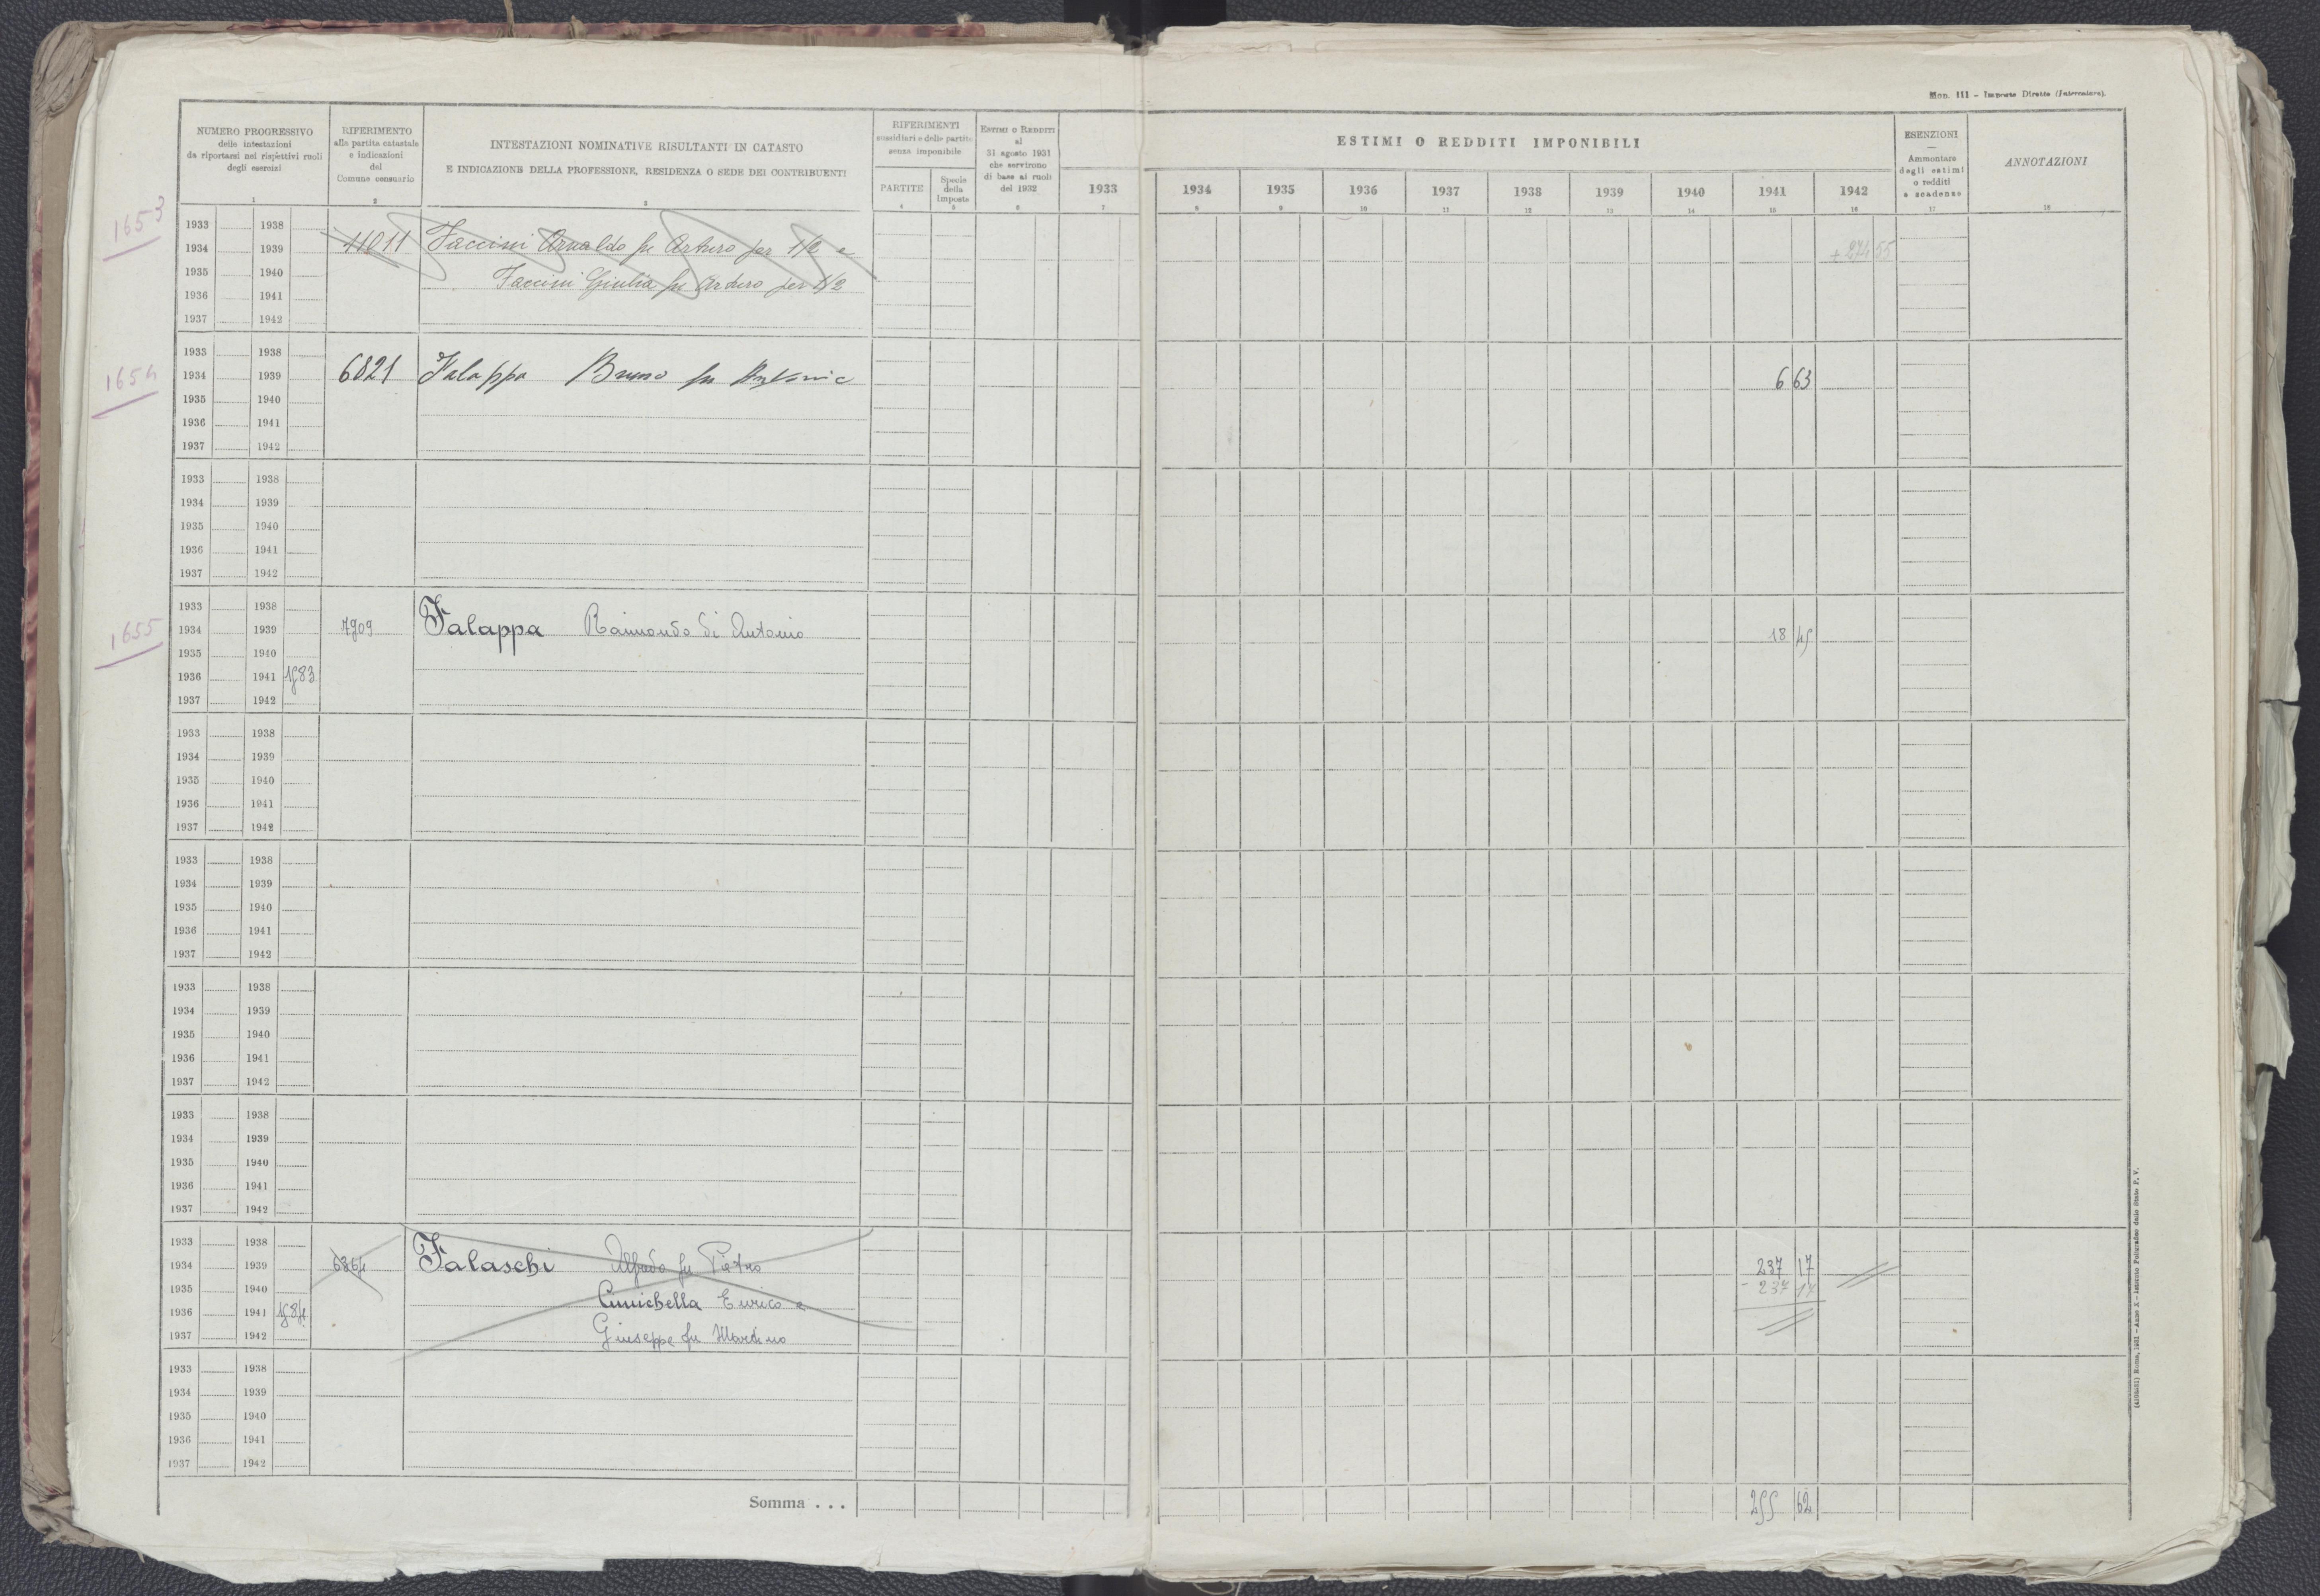 Mod. 111 - Imposte Dirette (Intercalare).
NUMERO PROGRESSIVO
delle intestazioni
da riportarsi nei rispettivi ruoli
degli esercizi
1
RIFERIMENTO
alla partita catastale
e indicazioni
del
Comune censuario
2
INTESTAZIONI NOMINATIVE RISULTANTI IN CATASTO
E INDICAZIONE DELLA PROFESSIONE, RESIDENZA O SEDE DEI CONTRIBUENTI
3
RIFERIMENTI
sussidiari e delle partite
senza imponibile
PARTITE
4
Specie
della
Imposta
5
ESTIMI O REDDITI
al
31 agosto 1931
che servirono
di base ai ruoli
del 1932
6
ESTIMI O REDDITI IMPONIBILI
1933 1934 1935 1936 1937 1938 1939 1940 1941 1942
7 8 9 10 11 12 13 14 15 16
ESENZIONI
—
Ammontare
degli estimi
o redditi
e scadenze
17
ANNOTAZIONI
18
1653
1933 1938
1934 1939 11011 Faccini Arnaldo fu Arturo per 1/2 e + 274 55
1935 1940 Faccini Giulia fu Arturo per 1/2
1936 1941
1937 1942
1654
1933 1938
1934 1939 6821 Falappa Bruno fu Antonio 6 63
1935 1940
1936 1941
1937 1942
1933 1938
1934 1939
1935 1940
1936 1941
1937 1942
1655
1933 1938
1934 1939 7909 Falappa Raimondo di Antonio 18 45
1935 1940
1936 1941 1583
1937 1942
1933 1938
1934 1939
1935 1940
1936 1941
1937 1942
1933 1938
1934 1939
1935 1940
1936 1941
1937 1942
1933 1938
1934 1939
1935 1940
1936 1941
1937 1942
1933 1938
1934 1939
1935 1940
1936 1941
1937 1942
1933 1938
1934 1939 6864 Falaschi Alfredo fu Pietro 237 17
1935 1940 - 237 17
1936 1941 1584 Cunichella Enrico e
1937 1942 Giuseppe fu Martino
1933 1938
1934 1939
1935 1940
1936 1941
1937 1942
Somma . . . 255 62
Roma, 1931 - Anno X - Istituto Poligrafico dello Stato P. V.